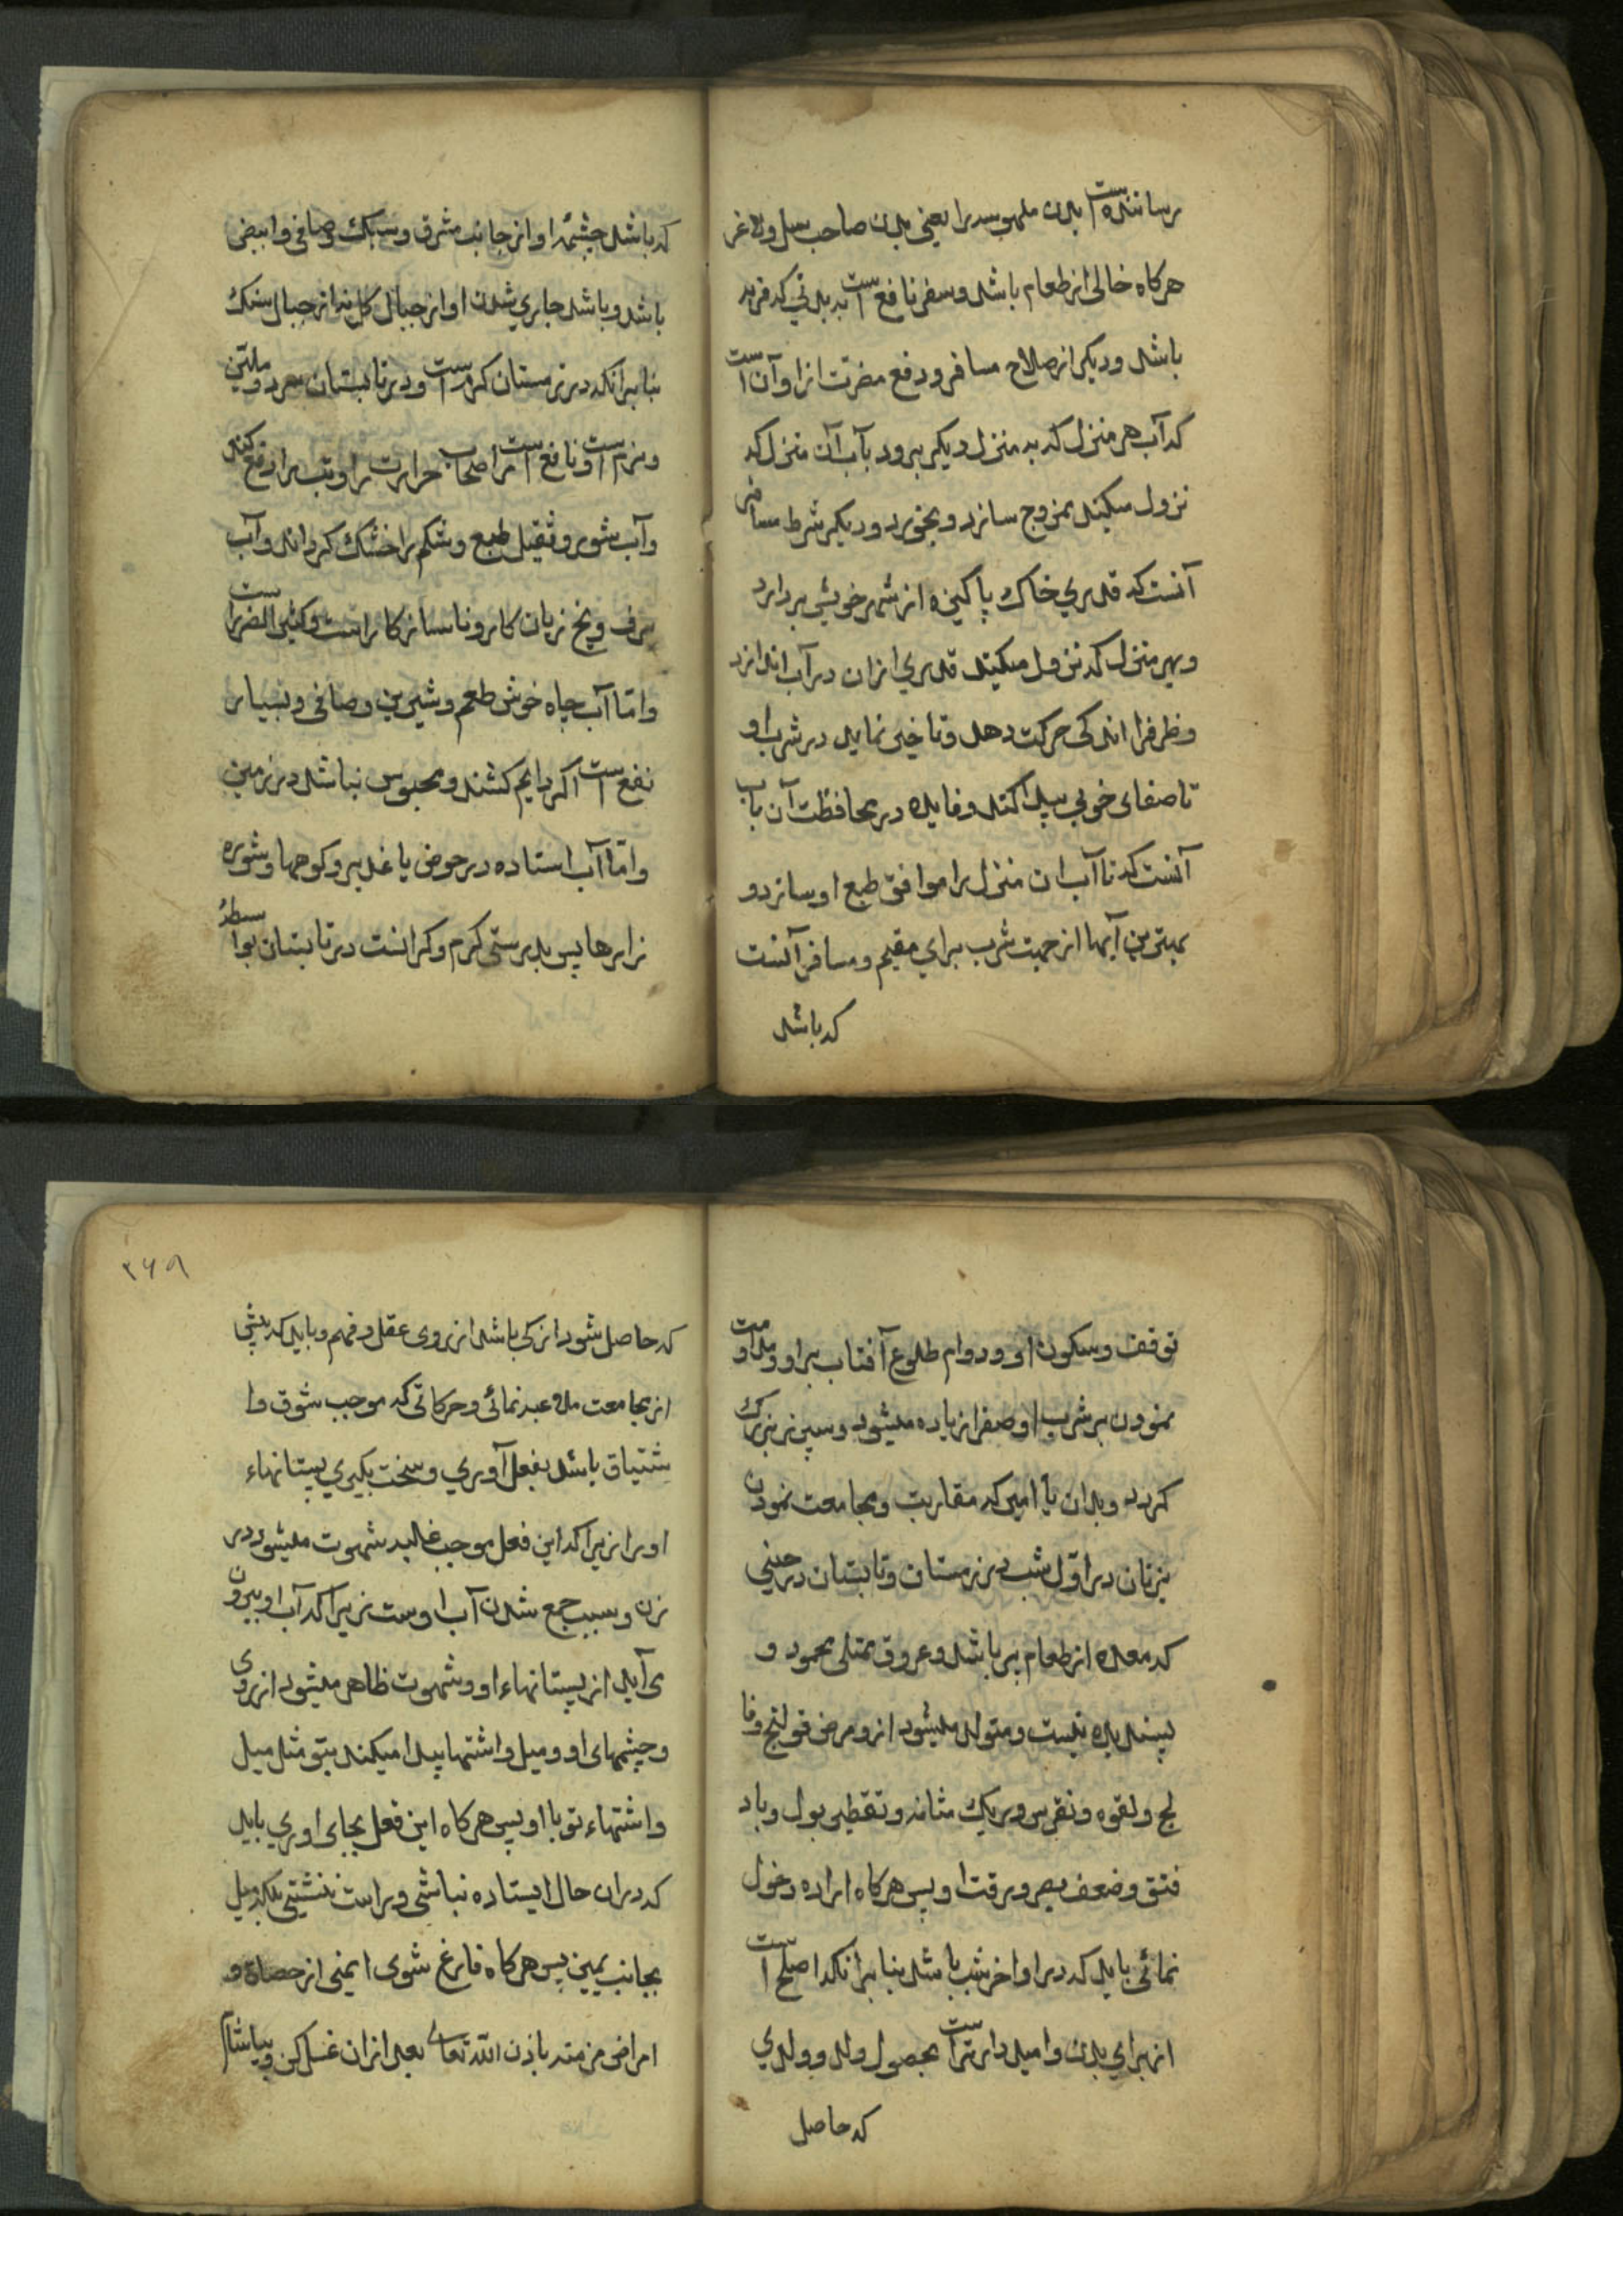 رساننده است بدن ملهوسه را یعنی بدن صاحب سل و لاغر
هرکاه خالی از طعام باشد و سفر نافع است به بدنی که فربه
باشد و دیکر از صلاح مسافر و دفع مضرت از او آن است
که آب هر منزل که به منزل دیکر برود بآب آن منزل که
نزول میکند ممزوج سازد و بخورد و دیکر شرط مسافر
آنست که قدری خاک پاکیزه از شهر خویش بردارد
و بهر منزل که نزول میکند قدری از ان در آب اندازد
و ظرف را اندکی حرکت دهد و تاخیر نماید در شرب او
تا صفای خوبی پیدا کند و فایده در محافظت آن باب
آنست که تا آب ان منزل را موافق طبع او سازد و
بهترین آبها از جهت شرب برای مقیم و مسافر آنست
که باشد
که باشد چشمه او از جانب مشرق و سبک و صافی و ابیض
باشد و باشد جاری شدن او از جبال کل نه از جبال سنک
بنا برانکه در زمستان کرم است و در تابستان سرد و ملین
و نرم است و نافع است مر اصحاب حرارت را و تب را دفع کند
و آب شور و ثقیل طبع و شکم را خشک کرداند و آب
برف و یخ زیان کار و ناساز کار است و کثیر الضرر است
و امّا آب چاه خوش طعم و شیرین و صافی و بسیار
نفع است اکر دایم کشند و محبوس نباشد در زمین
و امّا آب استاده در حوض یا غدیر و کوهها و شوره
زارها پس بدرستی کرم و کرانست در تابستان بواسطهٔ
توقف و سکون او و دوام طلوع آفتاب بر او و مداومت
نمودن بر شرب او صفرا زیاده میشود و سپرز بزرک
کردد و بدان یا امیر که مقاربت و مجامعت نمودن
بزنان در اوّل شب در زمستان و تابستان در حینی
که معده از طعام پر باشد و عروق ممتلی محمود و
پسندیده نیست و متولد میشود از و مرض قولنج و فا
لج و لقوه و نقرس و ریک مثانه و تقطیر بول و باد
فتق و ضعف بصر و رقت او پس هرکاه اراده دخول
نمائی باید که در اواخر شب باشد بنا برانکه اصلح است
از برای بدن و امیدوار تر است بحصول ولد و ولدی
که حاصل
۳۶۹
که حاصل شود ازکی باشد از روی عقل و فهم و باید که پیش
از مجامعت ملاعبه نمائی و حرکاتی که موجب شوق و ا
شتیاق باشد بفعل آوری و سخت بکیری پستانهاء
او را زیرا که این فعل موجب غلبه شهوت میشود در
زن و سبب جمع شدن آب اوست زیرا که آب او بیرون
می آید از پستانهاء او و شهوت ظاهر میشود از روی
و چشمهای او و میل و اشتها پیدا میکند بتو مثل میل
و اشتهاء تو با او پس هرکاه این فعل بجای اوری باید
که دران حال ایستاده نباشی و راست ننشینی بلکه میل
بجانب یمین پس هرکاه فارغ شوی ایمنی از حصاة و
امراض مزمنه باذن الله تعالی بعد ازان غسل کن و بیاشام